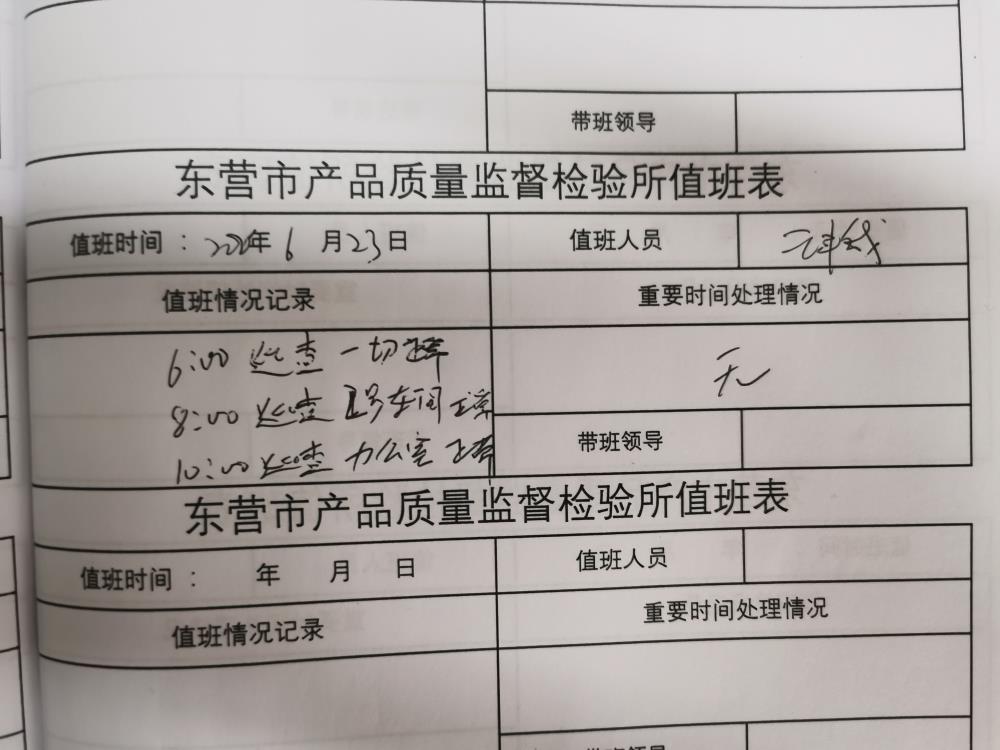 带班领导
东营市产品质量监督检验所值班表
值班时间：2020年6月23日 值班人员
值班情况记录 重要时间处理情况
6:00 巡查 一切正常 无
8:00 巡查 1号车间 正常
带班领导
10:00 巡查 办公室 正常
东营市产品质量监督检验所值班表
值班时间： 年 月 日 值班人员
值班情况记录 重要时间处理情况
带班领导